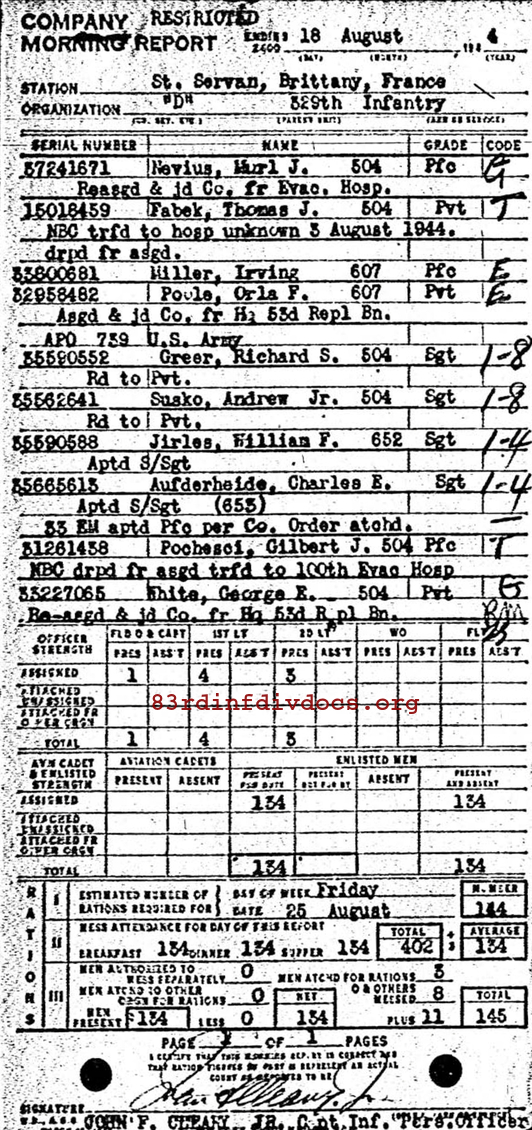 COMPANY RESTRICTED
MORNING REPORT ENDING 2400 18 August 194 4
(DAY) (MONTH) (YEAR)
STATION St. Servan, Brittany, France
ORGANIZATION "D" 329th Infantry
(CO. DET. ETC.) (PARENT UNIT) (ARM OR SERVICE)
SERIAL NUMBER NAME GRADE CODE
37241671 Nevius, Murl J. 504 Pfc G
Reasgd & jd Co. fr Evac. Hosp.
15018459 Fabek, Thomas J. 504 Pvt T
NBC trfd to hosp unknown 3 August 1944.
drpd fr asgd.
33800681 Miller, Irving 607 Pfc E
32958482 Poole, Orla F. 607 Pvt E
Asgd & jd Co. fr Hq 53d Repl Bn.
APO 739 U.S. Army
35590552 Greer, Richard S. 504 Sgt 1-8
Rd to Pvt.
35562641 Susko, Andrew Jr. 504 Sgt 1-8
Rd to Pvt.
35590588 Jirles, William F. 652 Sgt 1-4
Aptd S/Sgt
35665613 Aufderheide, Charles E. Sgt 1-4
Aptd S/Sgt (653)
33 EM aptd Pfc per Co. Order atchd. —
31261438 Pochesci, Gilbert J. 504 Pfc T
NBC drpd fr asgd trfd to 100th Evac Hosp
33227065 White, George E. 504 Pvt G
Re-asgd & jd Co. fr Hq 53d R pl Bn.
OFFICER STRENGTH FLD O & CAPT 1ST LT 2D LT WO FL
PRES ABS'T PRES ABS'T PRES ABS'T PRES ABS'T PRES ABS'T
ASSIGNED 1 4 3
ATTACHED UNASSIGNED
ATTACHED FR OTHER ORGN
83rdinfdivdocs.org
TOTAL 1 4 3
AVN CADET & ENLISTED STRENGTH AVIATION CADETS ENLISTED MEN
PRESENT ABSENT PRESENT FOR DUTY PRESENT NOT FOR DY ABSENT PRESENT AND ABSENT
ASSIGNED 134 134
ATTACHED UNASSIGNED
ATTACHED FR OTHER ORGN
TOTAL 134 134
RATIONS
I ESTIMATED NUMBER OF RATIONS REQUIRED FOR DAY OF WEEK Friday NUMBER
DATE 25 August 144
II MESS ATTENDANCE FOR DAY OF THIS REPORT TOTAL ÷ 3 AVERAGE
BREAKFAST 134 DINNER 134 SUPPER 134 402 134
III MEN AUTHORIZED TO MESS SEPARATELY 0 MEN ATCHD FOR RATIONS 3
MEN ATCHD TO OTHER ORGN FOR RATIONS 0 NET O & OTHERS MESSED 8 TOTAL
MEN PRESENT 134 LESS 0 134 PLUS 11 145
PAGE 1 OF 1 PAGES
I CERTIFY THAT THIS MORNING REP. RT IS CORRECT AND
THAT RATION FIGURES IN PART III REPRESENT AN ACTUAL
COUNT AS REPORTED TO ME
SIGNATURE John F Cleary, Jr.
JOHN F. CLEARY, JR. Capt. Inf. Pers. Officer